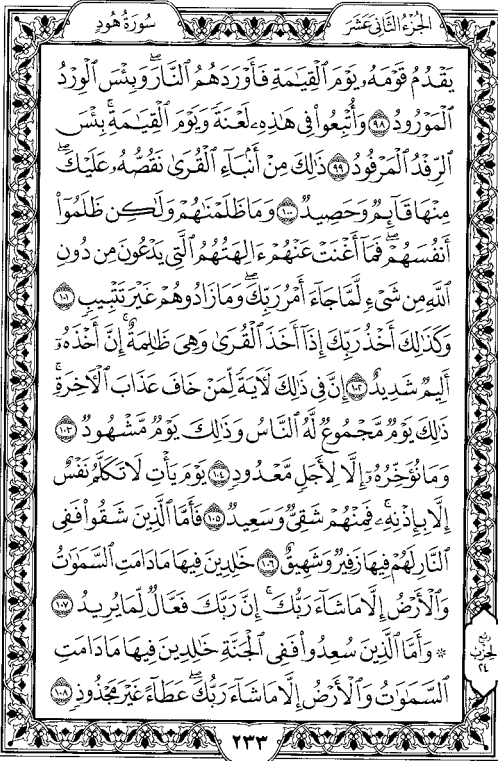 الجزء الثاني عشر
سورة هود
يَقْدُمُ قَوْمَهُۥ يَوْمَ ٱلْقِيَٰمَةِ فَأَوْرَدَهُمُ ٱلنَّارَۖ وَبِئْسَ ٱلْوِرْدُ
ٱلْمَوْرُودُ ۝٩٨ وَأُتْبِعُوا۟ فِى هَٰذِهِۦ لَعْنَةً وَيَوْمَ ٱلْقِيَٰمَةِۚ بِئْسَ
ٱلرِّفْدُ ٱلْمَرْفُودُ ۝٩٩ ذَٰلِكَ مِنْ أَنۢبَآءِ ٱلْقُرَىٰ نَقُصُّهُۥ عَلَيْكَۖ
مِنْهَا قَآئِمٌ وَحَصِيدٌ ۝١٠٠ وَمَا ظَلَمْنَٰهُمْ وَلَٰكِن ظَلَمُوٓا۟
أَنفُسَهُمْۖ فَمَآ أَغْنَتْ عَنْهُمْ ءَالِهَتُهُمُ ٱلَّتِى يَدْعُونَ مِن دُونِ
ٱللَّهِ مِن شَىْءٍ لَّمَّا جَآءَ أَمْرُ رَبِّكَۖ وَمَا زَادُوهُمْ غَيْرَ تَتْبِيبٍ ۝١٠١
وَكَذَٰلِكَ أَخْذُ رَبِّكَ إِذَآ أَخَذَ ٱلْقُرَىٰ وَهِىَ ظَٰلِمَةٌۚ إِنَّ أَخْذَهُۥٓ
أَلِيمٌ شَدِيدٌ ۝١٠٢ إِنَّ فِى ذَٰلِكَ لَءَايَةً لِّمَنْ خَافَ عَذَابَ ٱلْءَاخِرَةِۚ
ذَٰلِكَ يَوْمٌ مَّجْمُوعٌ لَّهُ ٱلنَّاسُ وَذَٰلِكَ يَوْمٌ مَّشْهُودٌ ۝١٠٣
وَمَا نُؤَخِّرُهُۥٓ إِلَّا لِأَجَلٍ مَّعْدُودٍ ۝١٠٤ يَوْمَ يَأْتِ لَا تَكَلَّمُ نَفْسٌ
إِلَّا بِإِذْنِهِۦۚ فَمِنْهُمْ شَقِىٌّ وَسَعِيدٌ ۝١٠٥ فَأَمَّا ٱلَّذِينَ شَقُوا۟ فَفِى
ٱلنَّارِ لَهُمْ فِيهَا زَفِيرٌ وَشَهِيقٌ ۝١٠٦ خَٰلِدِينَ فِيهَا مَا دَامَتِ ٱلسَّمَٰوَٰتُ
وَٱلْأَرْضُ إِلَّا مَا شَآءَ رَبُّكَۚ إِنَّ رَبَّكَ فَعَّالٌ لِّمَا يُرِيدُ ۝١٠٧
۞ وَأَمَّا ٱلَّذِينَ سُعِدُوا۟ فَفِى ٱلْجَنَّةِ خَٰلِدِينَ فِيهَا مَا دَامَتِ
ٱلسَّمَٰوَٰتُ وَٱلْأَرْضُ إِلَّا مَا شَآءَ رَبُّكَۖ عَطَآءً غَيْرَ مَجْذُوذٍ ۝١٠٨
ربع
الحزب
٢٤
٢٣٣